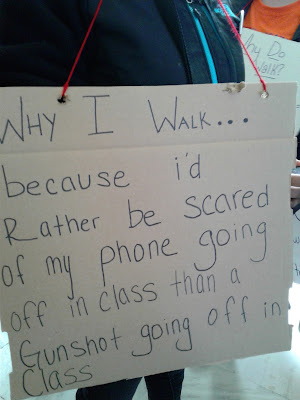 WHY I WALK...
because i'd
Rather be scared
of my phone going
off in class than a
Gunshot going off in
Class
Do
Walk?